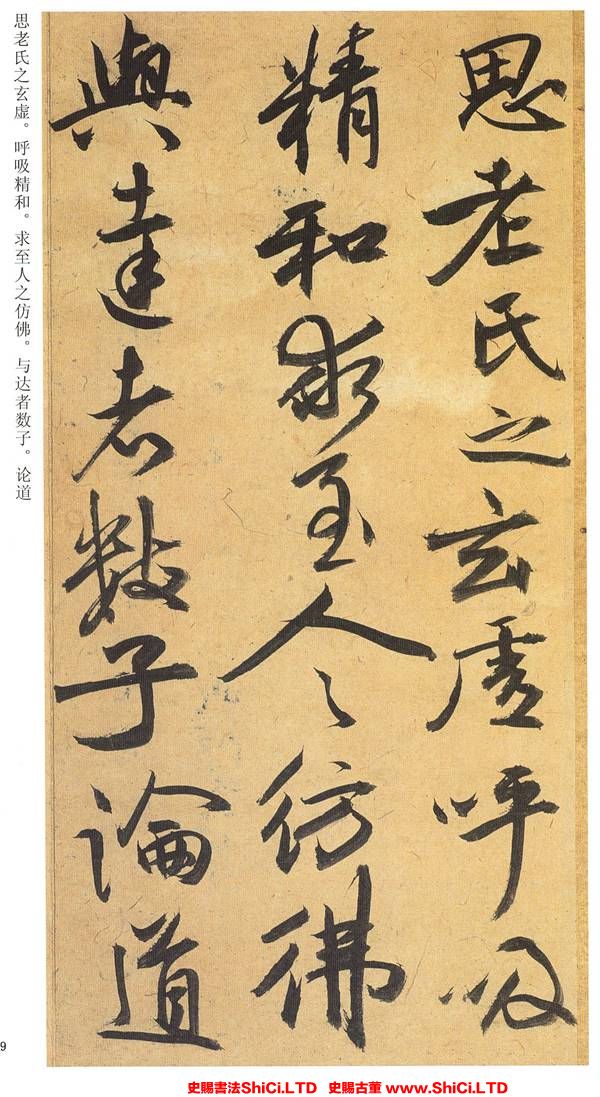 思老氏之玄虛呼吸
精和求至人之彷彿
與達者數子論道
思老氏之玄虚。呼吸精和。求至人之仿佛。与达者数子。论道
9
史賜書法ShiCi.LTD 史賜古董 www.ShiCi.LTD